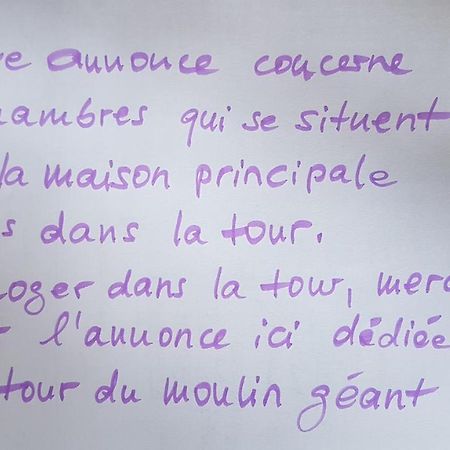 e annonce concerne
ambres qui se situent
la maison principale
s dans la tour.
loger dans la tour, merc
l'annonce ici dédiée
tour du moulin géant